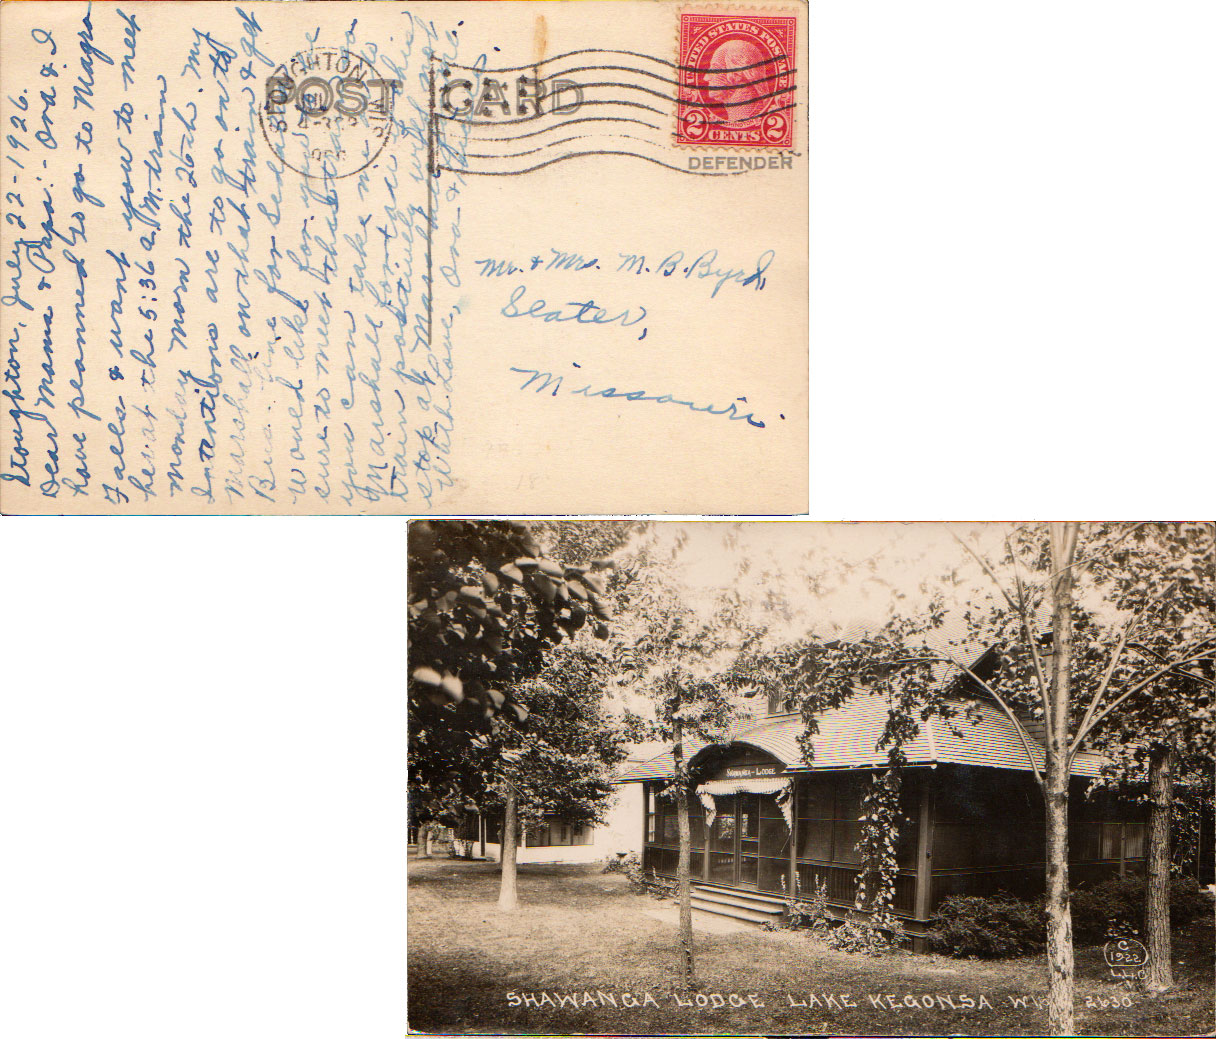 Stoughton, July 22-1926.
Dear Mama & Papa:- Ora & I
have planned to go to Niagra
Falls & want you to meet
her at the 5:36 a.M. train
Monday morn the 26th. My
Intentions are to go on to
Marshall on that train & get
Bus. line for Sedalia
would like for you to be
sure to meet that train so
you can take me to
Marshall for tow this
train positively will not
stop at Marshall
With Love, Ora &
POST CARD
STOUGHTON WIS
JUL
UNITED STATES POSTAGE
2 CENTS 2
DEFENDER
Mr. & Mrs. M. B. Byrd,
Slater,
Missouri.
SHAWANGA-LODGE
C
1922
L.L.C
SHAWANGA LODGE LAKE KEGONSA WIS 2630